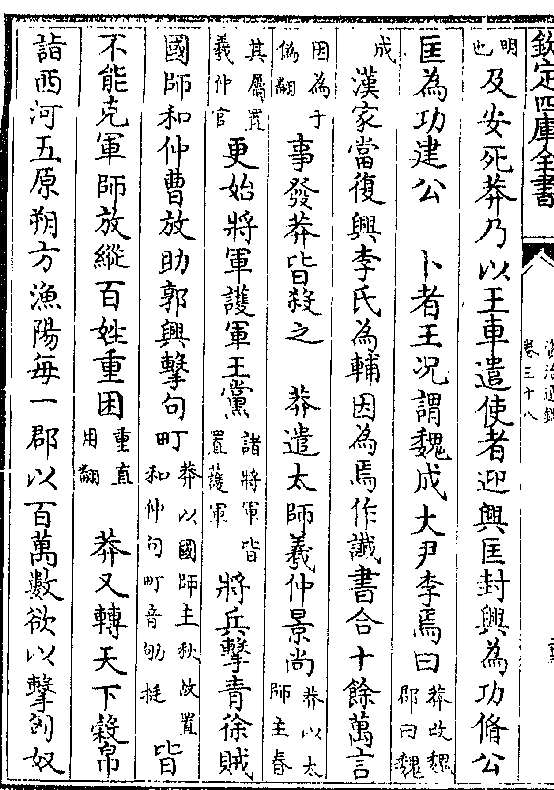 欽定四庫全書
資治通鑑
卷三十八
明也及安死莽乃以王車遣使者迎興匡封興為功脩公
匡為功建公　卜者王况謂魏成大尹李焉曰莽改魏郡曰魏
成漢家當復興李氏為輔因為焉作讖書合十餘萬言
因為于偽翻事發莽皆殺之　莽遣太師羲仲景尚莽以太師主春
其屬置羲仲官更始將軍護軍王黨諸將軍皆置護軍將兵擊青徐賊
國師和仲曹放助郭興擊句町莽以國師主秋故置和仲句町音劬挺皆
不能克軍師放縱百姓重困重直用翻　莽又轉天下穀帛
詣西河五原朔方漁陽每一郡以百萬數欲以擊匈奴